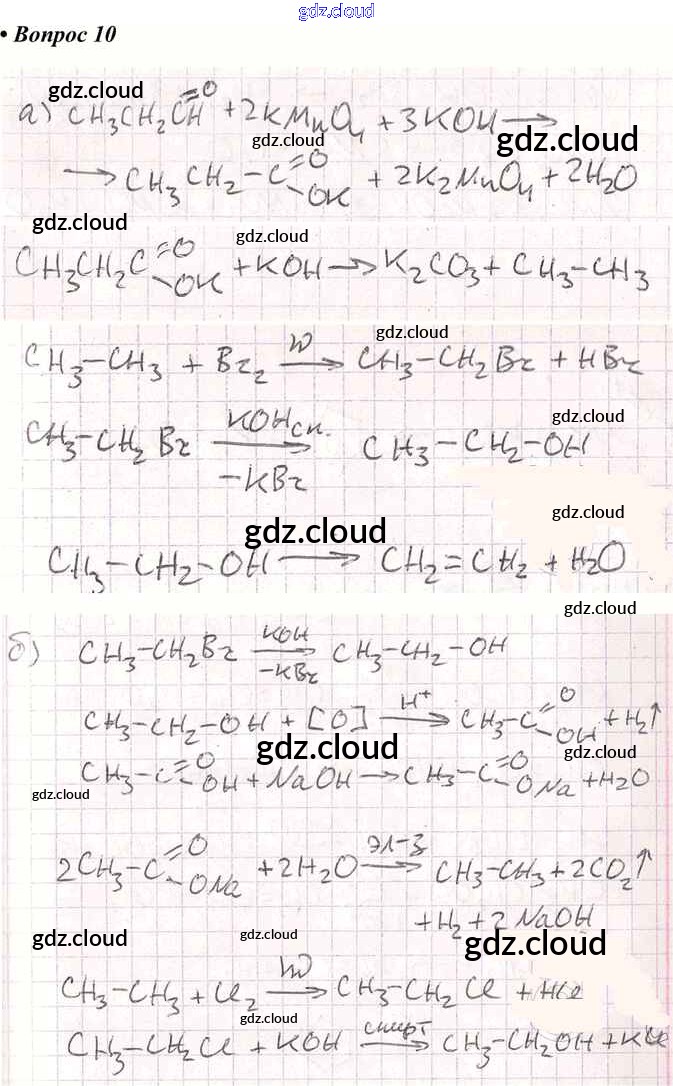 gdz.cloud
• Вопрос 10
gdz.cloud
а) CH3CH2CH=O + 2KMnO4 + 3KOH →
gdz.cloud
gdz.cloud
→ CH3CH2-C=O-OK + 2K2MnO4 + 2H2O
gdz.cloud
gdz.cloud
CH3CH2C=O-OK + KOH → K2CO3 + CH3-CH3
gdz.cloud
CH3-CH3 + Br2 hν→ CH3-CH2Br + HBr
gdz.cloud
CH3-CH2Br KOH сп. → -KBr CH3-CH2-OH
gdz.cloud
gdz.cloud
CH3-CH2-OH → CH2=CH2 + H2O
gdz.cloud
б) CH3-CH2Br KOH → -KBr CH3-CH2-OH
CH3-CH2-OH + [O] H+→ CH3-C=O-OH + H2↑
gdz.cloud
gdz.cloud
CH3-C=O-OH + NaOH → CH3-C=O-ONa + H2O
gdz.cloud
2CH3-C=O-ONa + 2H2O эл-з→ CH3-CH3 + 2CO2↑
+ H2 + 2NaOH
gdz.cloud
gdz.cloud
gdz.cloud
CH3-CH3 + Cl2 hν→ CH3-CH2Cl + HCl
gdz.cloud
gdz.cloud
CH3-CH2Cl + KOH спирт→ CH3-CH2OH + KCl